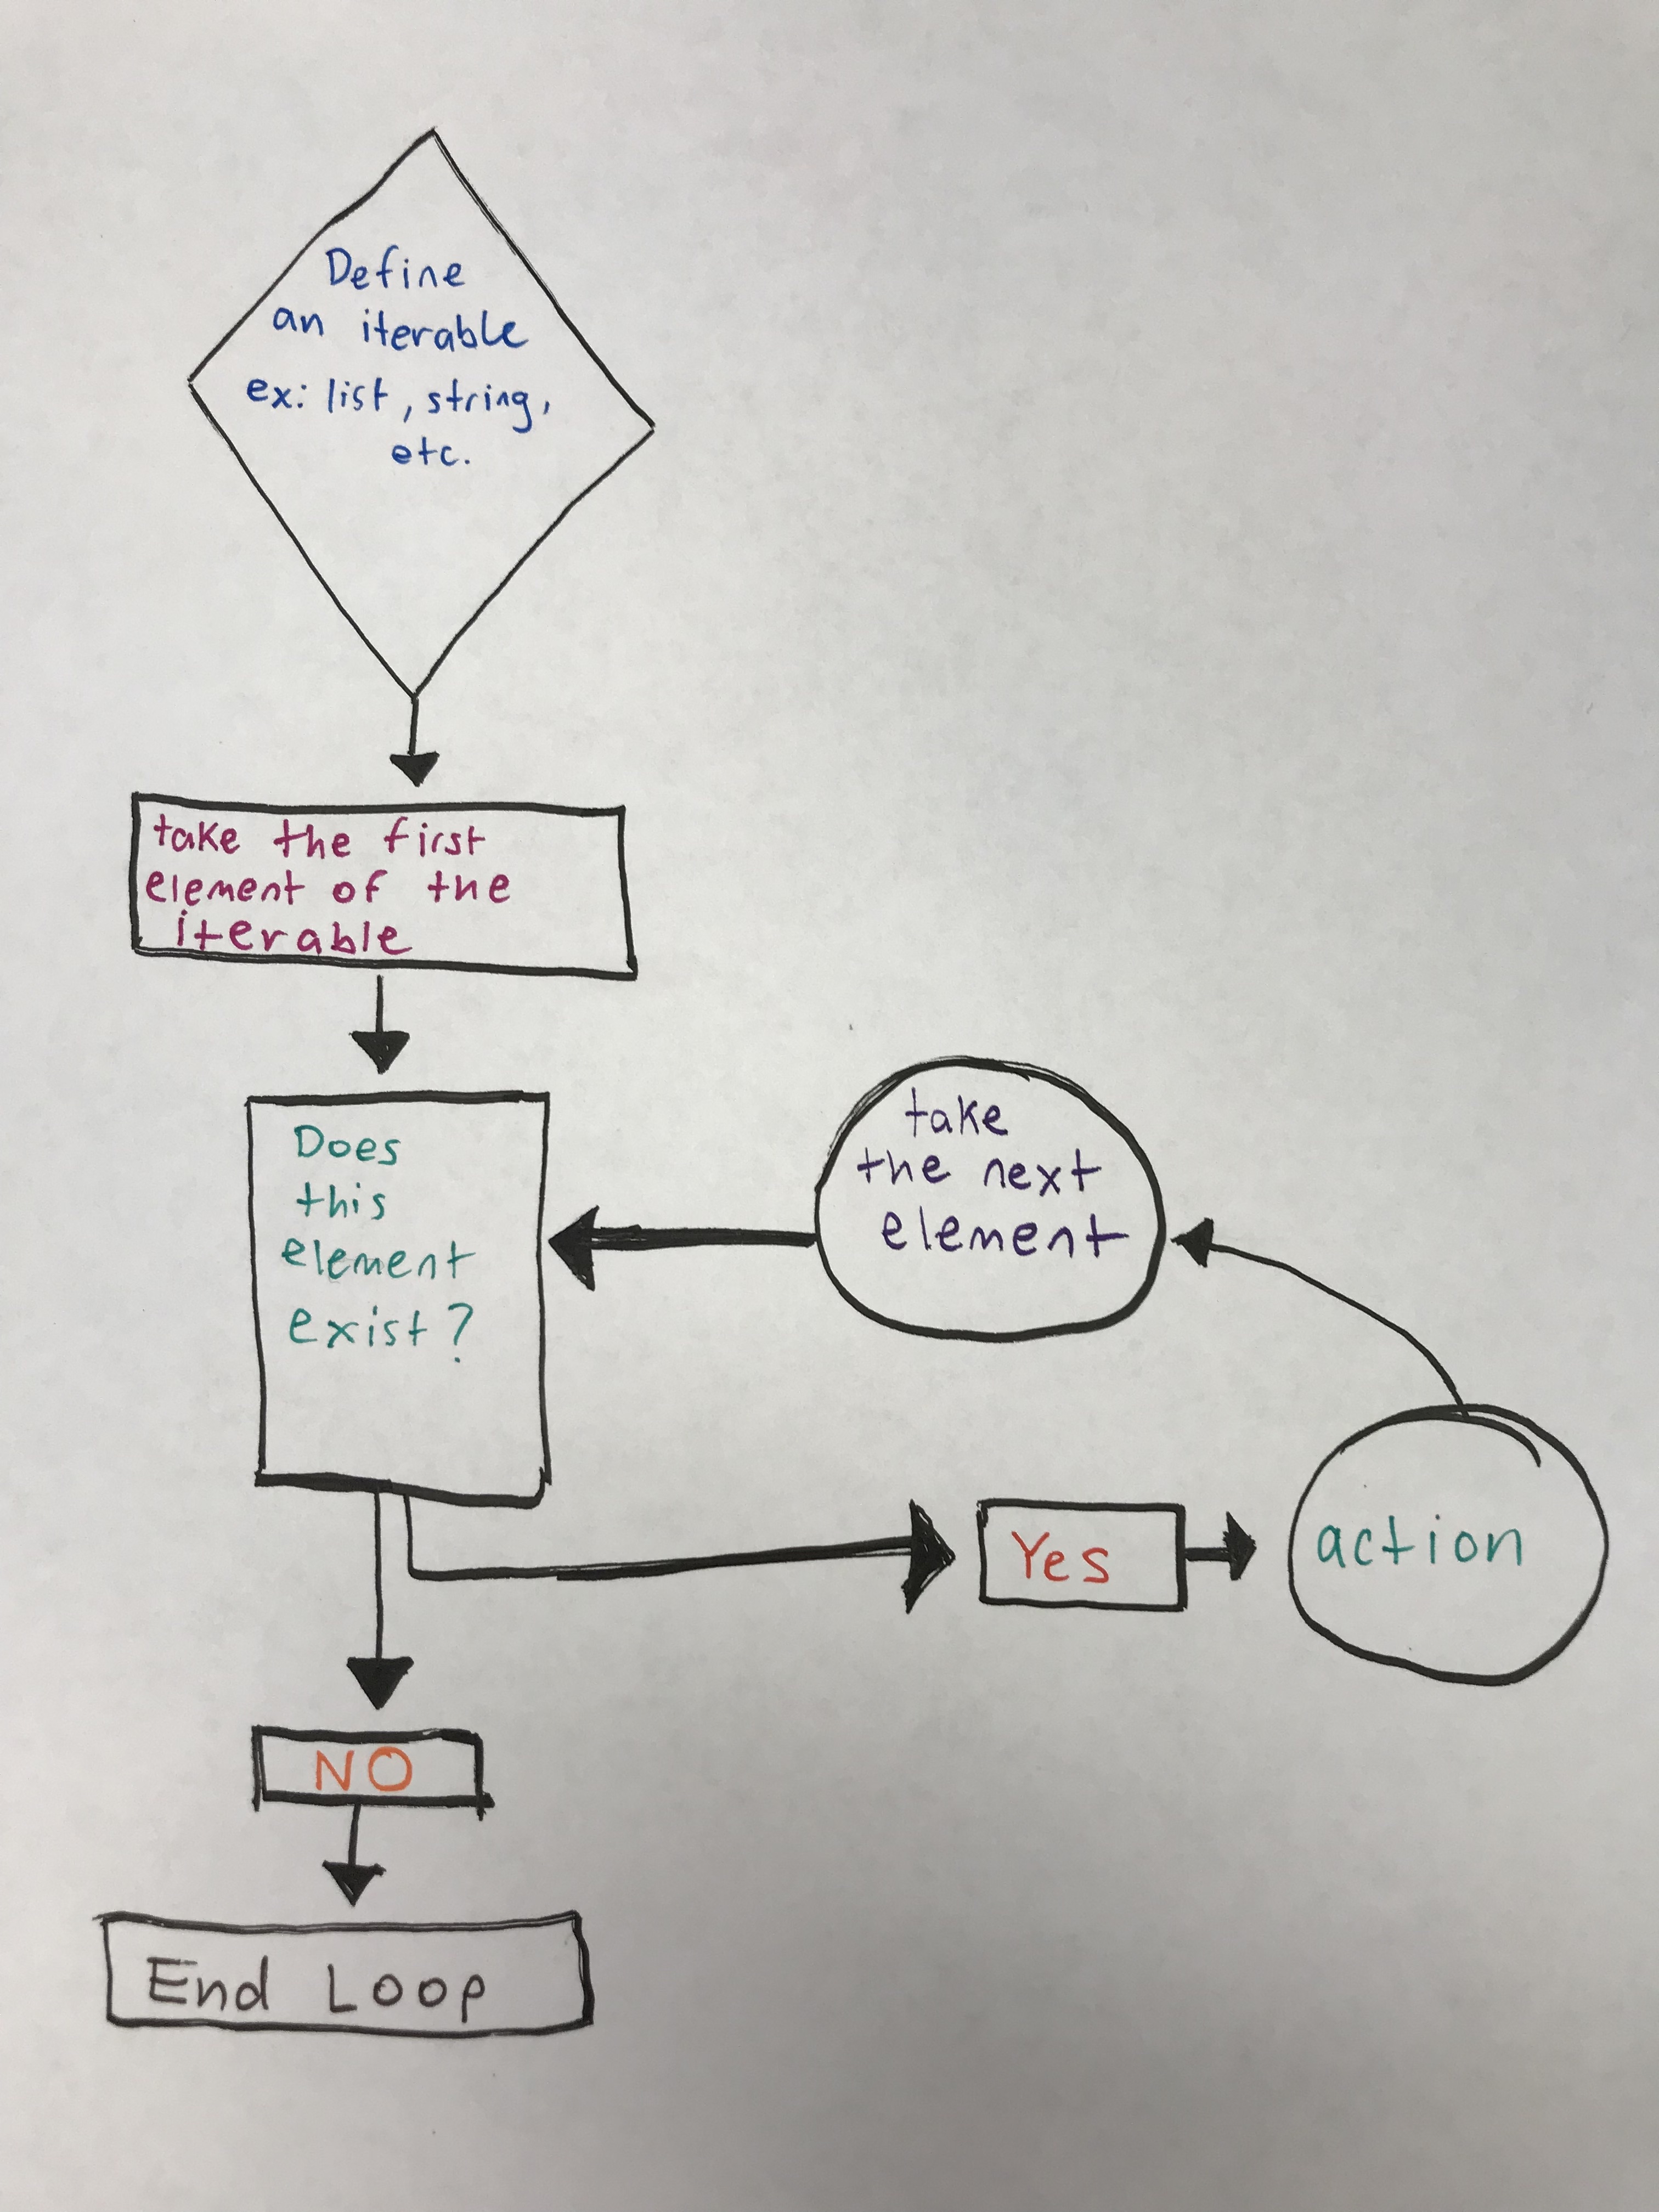 Define
an iterable
ex: list, string,
etc.
take the first
element of the
iterable
Does
this
element
exist?
take
the next
element
Yes
action
NO
End Loop